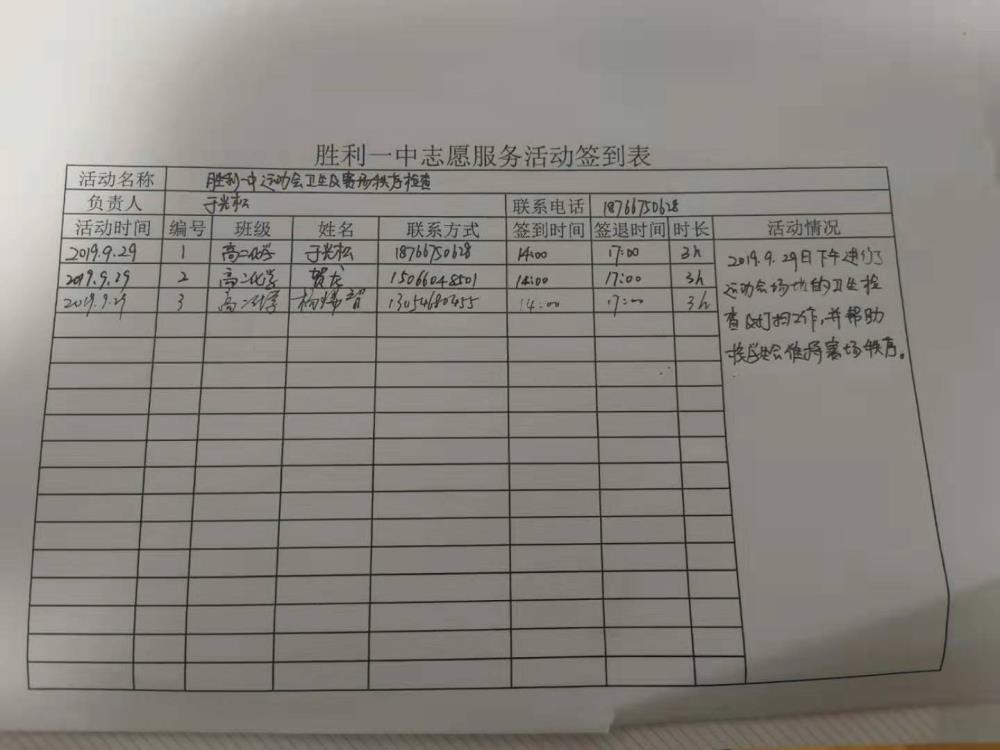 胜利一中志愿服务活动签到表
活动名称 胜利一中运动会卫生及赛场秩序检查
负责人 于光松 联系电话 18766750628
活动时间 编号 班级 姓名 联系方式 签到时间 签退时间 时长 活动情况
2019.9.29 1 高二化学 于光松 18766750628 14:00 17:00 3h
2019.9.29 2 高二化学 贺龙 15066048501 14:00 17:00 3h
2019.9.29 3 高二化学 13054680455 14:00 17:00 3h
2019.9.29日下午进行了
运动会场地的卫生检
查及打扫工作,并帮助
学生会维持赛场秩序。